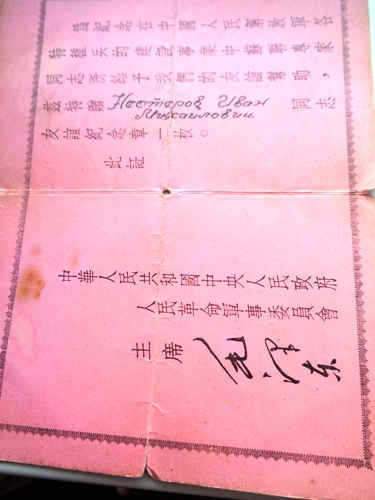 為紀念在中國人民解放軍各
特種兵的建設事業中蘇聯專家
同志所給予我們的友誼幫助，
茲特贈 Нестеров Иван Михаилович 同志
友誼紀念章一枚。
此証
中華人民共和國中央人民政府
人民革命軍事委員會
主席 毛澤东